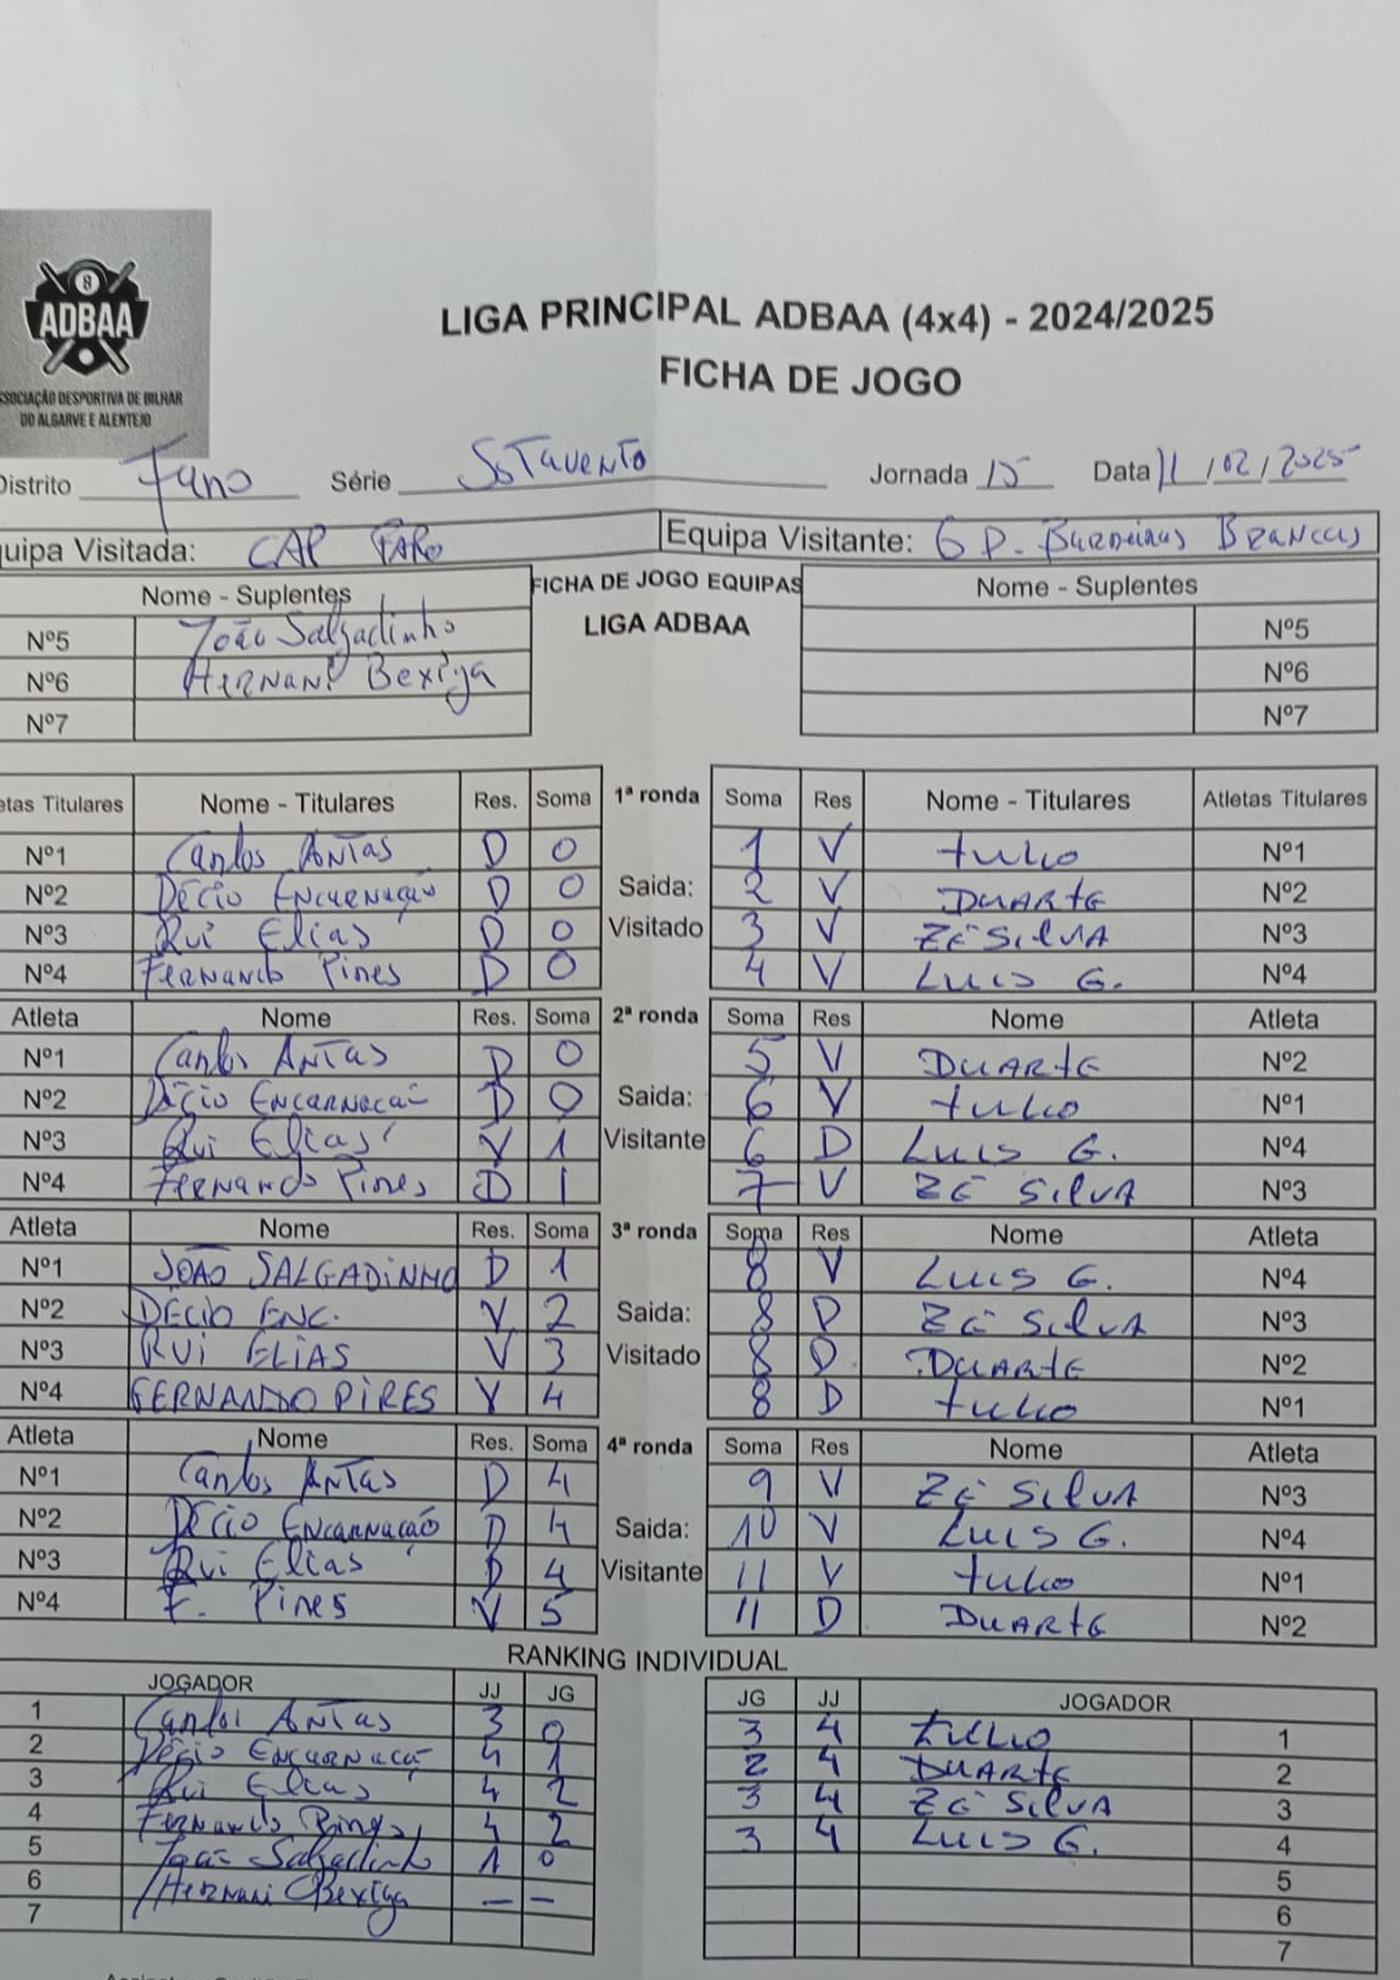 8
ADBAA
SSOCIAÇÃO DESPORTIVA DE BILHAR
DO ALGARVE E ALENTEJO
LIGA PRINCIPAL ADBAA (4x4) - 2024/2025
FICHA DE JOGO
Distrito Faro Série Sotavento Jornada 15 Data 11/02/2025
quipa Visitada: CAP FARO Equipa Visitante: G D. Barreiras Brancas
Nome - Suplentes FICHA DE JOGO EQUIPAS Nome - Suplentes
LIGA ADBAA
Nº5 João Salgadinho Nº5
Nº6 HERNANI Bexiga Nº6
Nº7 Nº7
etas Titulares Nome - Titulares Res. Soma 1ª ronda Soma Res Nome - Titulares Atletas Titulares
Nº1 Carlos ANTAS D 0 1 V tulio Nº1
Nº2 Décio Encarnação D 0 Saida: 2 V DUARTE Nº2
Nº3 Rui Elias D 0 Visitado 3 V ZÉ SILVA Nº3
Nº4 Fernando Pires D 0 4 V LUIS G. Nº4
Atleta Nome Res. Soma 2ª ronda Soma Res Nome Atleta
Nº1 Carlos ANTAS D 0 5 V DUARTE Nº2
Nº2 Décio Encarnação D 0 Saida: 6 V tulio Nº1
Nº3 Rui Elias V 1 Visitante 6 D LUIS G. Nº4
Nº4 Fernando Pires D 1 7 V ZÉ SILVA Nº3
Atleta Nome Res. Soma 3ª ronda Soma Res Nome Atleta
Nº1 JOÃO SALGADINHO D 1 8 V LUIS G. Nº4
Nº2 DÉCIO ENC. V 2 Saida: 8 D ZÉ SILVA Nº3
Nº3 RUI ELIAS V 3 Visitado 8 D DUARTE Nº2
Nº4 FERNANDO PIRES V 4 8 D tulio Nº1
Atleta Nome Res. Soma 4ª ronda Soma Res Nome Atleta
Nº1 Carlos ANTAS D 4 9 V ZÉ SILVA Nº3
Nº2 Décio Encarnação D 4 Saida: 10 V LUIS G. Nº4
Nº3 Rui Elias D 4 Visitante 11 V tulio Nº1
Nº4 F. Pires V 5 11 D DUARTE Nº2
RANKING INDIVIDUAL
JOGADOR JJ JG JG JJ JOGADOR
1 Carlos ANTAS 3 0 3 4 tulio 1
2 Décio Encarnaçã 4 1 2 4 DUARTE 2
3 Rui Elias 4 2 3 4 ZÉ SILVA 3
4 Fernando Pires 4 2 3 4 LUIS G. 4
5 João Salgadinho 1 0 5
6 HERNANI Bexiga — — 6
7 7